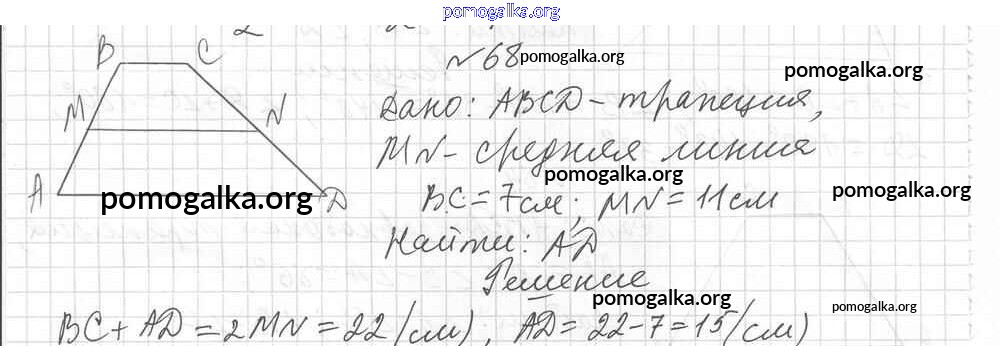 pomogalka.org
2
№68 pomogalka.org
B C
pomogalka.org
Дано: ABCD - трапеция,
M N
MN - средняя линия
pomogalka.org
A D
pomogalka.org
BC = 7 см; MN = 11 см
pomogalka.org
Найти: AD
Решение
pomogalka.org
pomogalka.org
BC + AD = 2MN = 22 (см); AD = 22 - 7 = 15 (см)